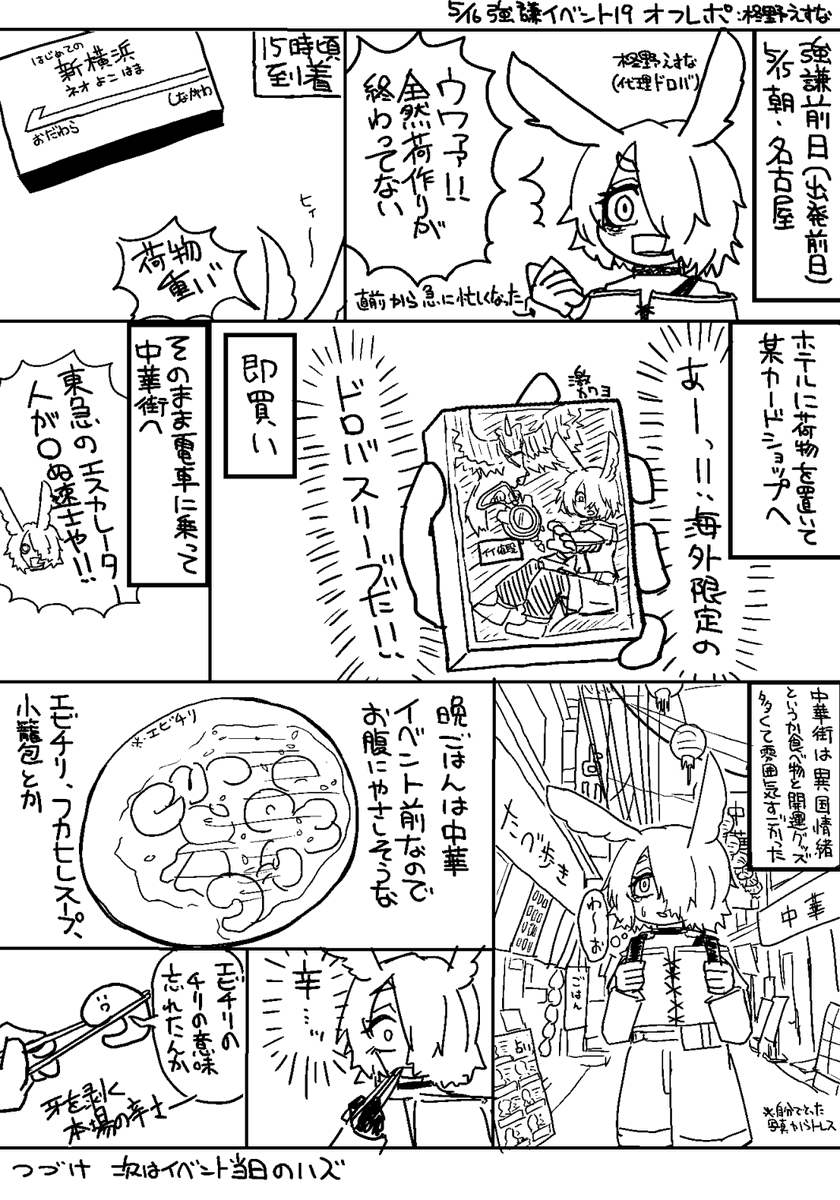 5/16 強謙イベント19 オフレポ:柊野えすな
強謙前日(出発前日)
5/15 朝・名古屋
柊野えすな
(代理ドロバ)
ウワァァ!!
全然荷作りが
終わってない
直前から急に忙しくなった
15時頃
到着
はじめての
新横浜
ネオ よこ はま
しながわ
おだわら
ヒィ〜
荷物
重い゛
ホテルに荷物を置いて
某カードショップへ
あーっ!!:海外限定の
ドロバスリーブだ!!
激
カワヨ
即買い
そのまま電車に乗って
中華街へ
東急のエスカレーター
人が〇ぬ速士や!!
中華街は異国情緒
というか食べ物と開運グッズ
多くて雰囲気すごかった
たべ歩き
中華
中華
ごはん
占い
わーお
※自分でとった
写真からトレス
晩ごはんは中華
イベント前なので
お腹にやさしそうな
※エビチリ
エビチリ、フカヒレスープ、
小籠包とか
辛…ッ
エビチリの
チリの意味
忘れたんか
牙を剥く
本場の辛士
つづけ 次はイベント当日のハズ